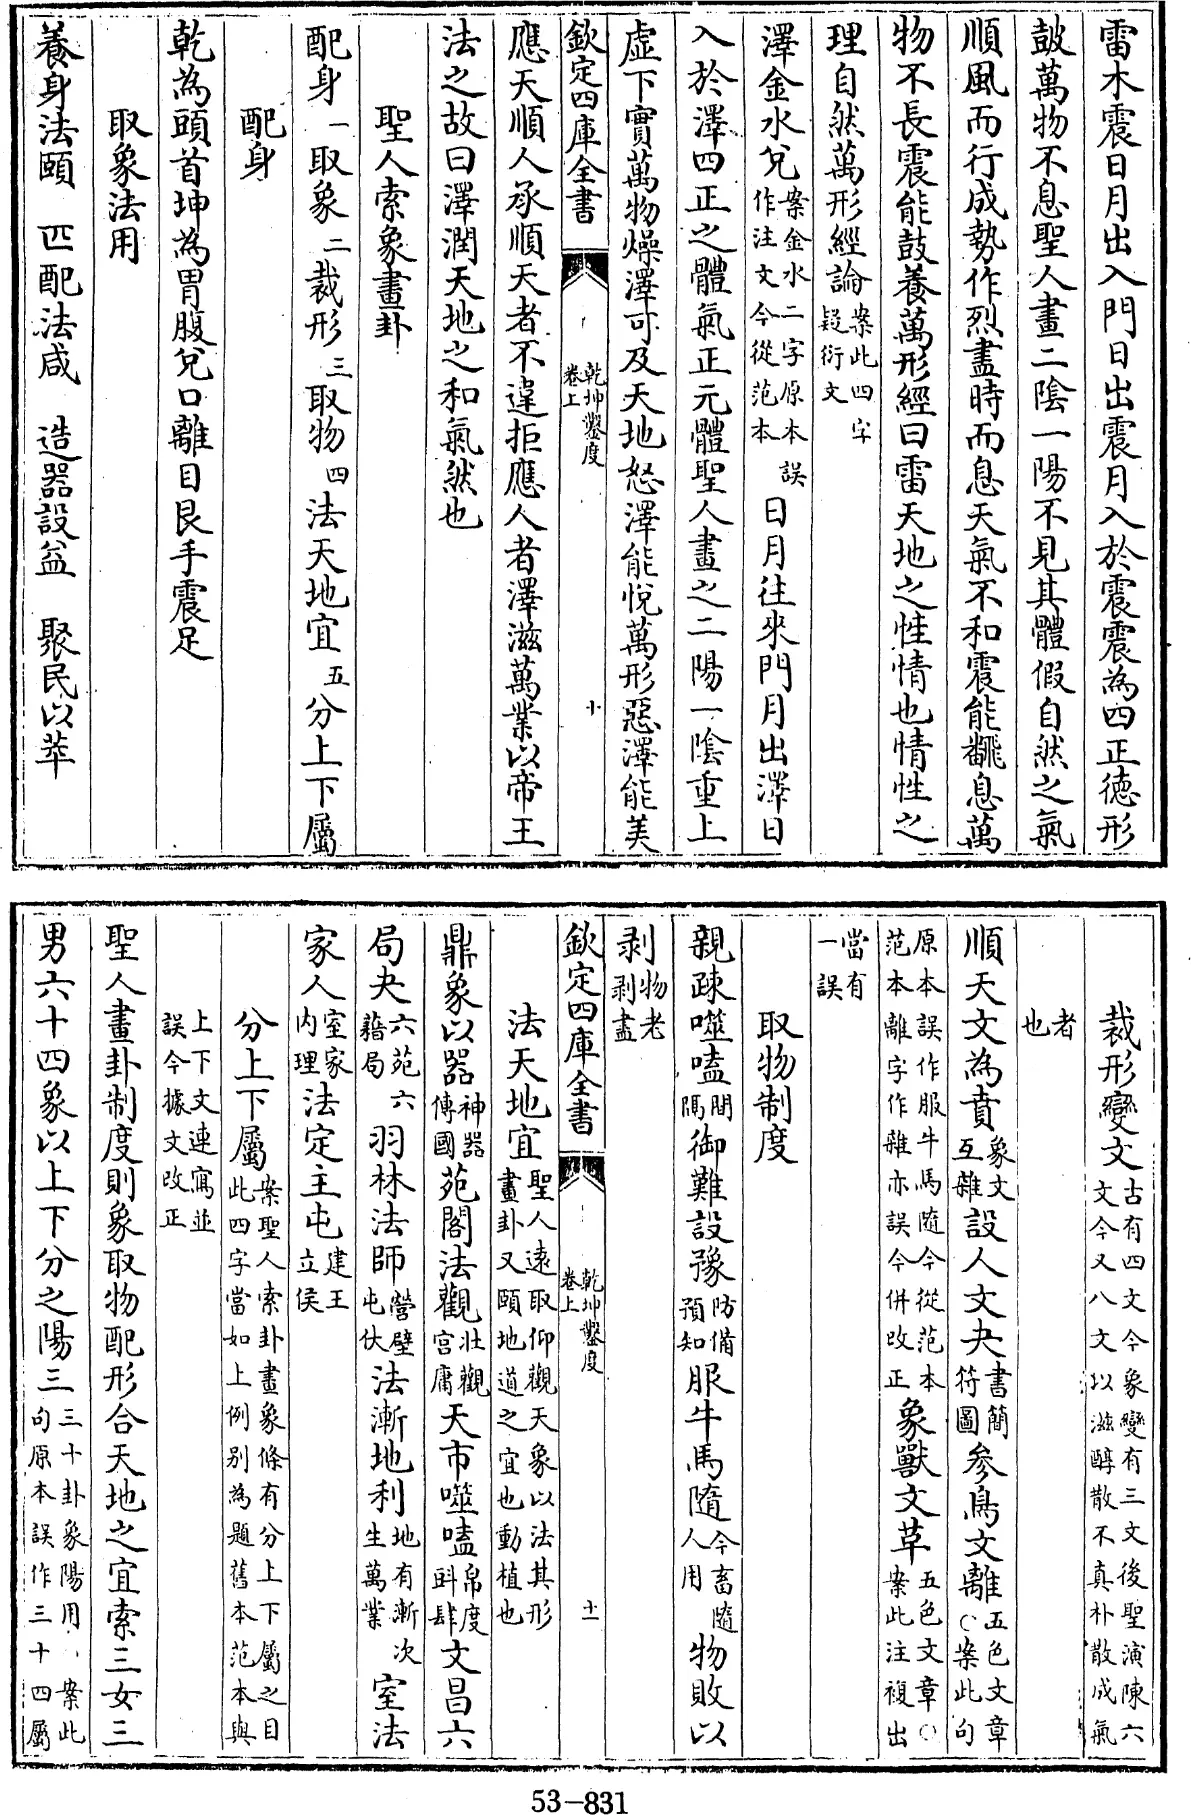 雷木震日月出入門日出震月入於震震為四正德形
鼓萬物不息聖人畫二陰一陽不見其體假自然之氣
順風而行成勢作烈盡時而息天氣不和震能翻息萬
物不長震能鼓養萬形經曰雷天地之性情也情性之
理自然萬形經論案此四字疑衍文
澤金水兌案金水二字原本誤作注文今從范本日月往來門月出澤日
入於澤四正之體氣正元體聖人畫之二陽一陰重上
虛下實萬物燥澤可及天地怒澤能悅萬形惡澤能美
欽定四庫全書 乾坤鑿度卷上 十
應天順人承順天者不違拒應人者澤滋萬業以帝王
法之故曰澤潤天地之和氣然也
聖人索象畫卦
配身一取象二裁形三取物四法天地宜五分上下屬
配身
乾為頭首坤為胃腹兌口離目艮手震足
取象法用
養身法頤 匹配法咸 造器設益 聚民以萃
裁形變文古有四文今象變有三文後聖演陳六文今又八文以滋醇散不真朴散成氣
者也
順天文為賁象文互雜設人文夬書簡符圖參鳥文離五色文章○案此句
原本誤作服牛馬隨今從范本范本離字作雜亦誤今併改正象獸文革五色文章○案此注複出
當有一誤
取物制度
親疎噬嗑間隔御難設豫防備預知服牛馬隨今畜隨人用物敗以
剥物老剥盡
欽定四庫全書 乾坤鑿度卷上 十一
法天地宜聖人遠取仰觀天象以法其形畫卦又頤地道之宜也動植也
鼎象以器神器傳國苑閣法觀壯觀宮庸天市噬嗑帛度斟肆文昌六
局夬六苑六藉局羽林法師營壁屯伏法漸地利地有漸次生萬業室法
家人室家内理法定主屯建王立侯
分上下屬案聖人索卦畫象條有分上下屬之目此四字當如上例别為題舊本范本與
上下文連寫並誤今據文改正
聖人畫卦制度則象取物配形合天地之宜索三女三
男六十四象以上下分之陽三三十卦象陽用 案此句原本誤作三十四屬
53-831